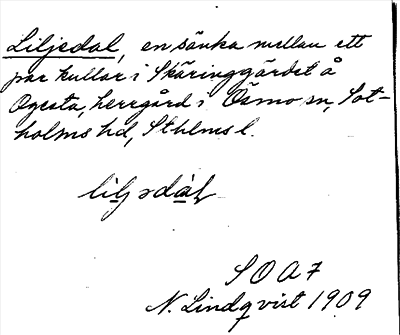 Liljedal, en sänka mellan ett
par kullar i Skäringgärdet å
Ogesta, herrgård i Ösmo sn, Sot-
holms hd, Sthlms l.
S O A 7
N. Lindqvist 1909